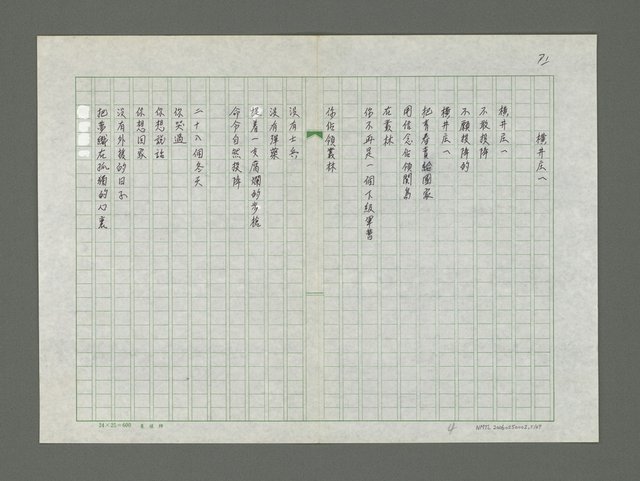 71
橫井庄一
橫井庄一
不敢投降
不願投降的
橫井庄一
把青春賣給國家
用信念佔領關島
在叢林
你不再是一個下級軍曹
你佔領叢林
沒有士兵
沒有彈藥
提着一支腐爛的步槍
命令自然投降
二十八個冬天
你哭過
你想說話
你想回家
沒有外援的日子
把夢織在孤獨的心裏
24×25=600
4